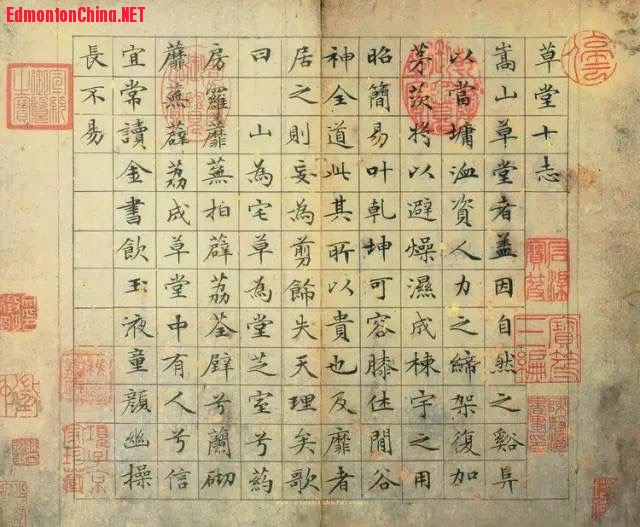 EdmontonChina.NET
草堂十志
嵩山草堂者盖因自然之谿阜
以當墉洫資人力之締架復加
茅茨将以避燥濕成棟宇之用
昭簡易叶乾坤可容膝休閒谷
神全道此其所以貴也及靡者
居之則妄為剪餝失天理矣歌
曰山為宅草為堂芝室兮葯
房羅蘼蕪拍薜荔荃壁兮蘭砌
蘼蕪薜荔成草堂中有人兮信
宜常讀金書飲玉液童顔幽操
長不易
石渠寶笈
寶笈三編
項子京家珍藏